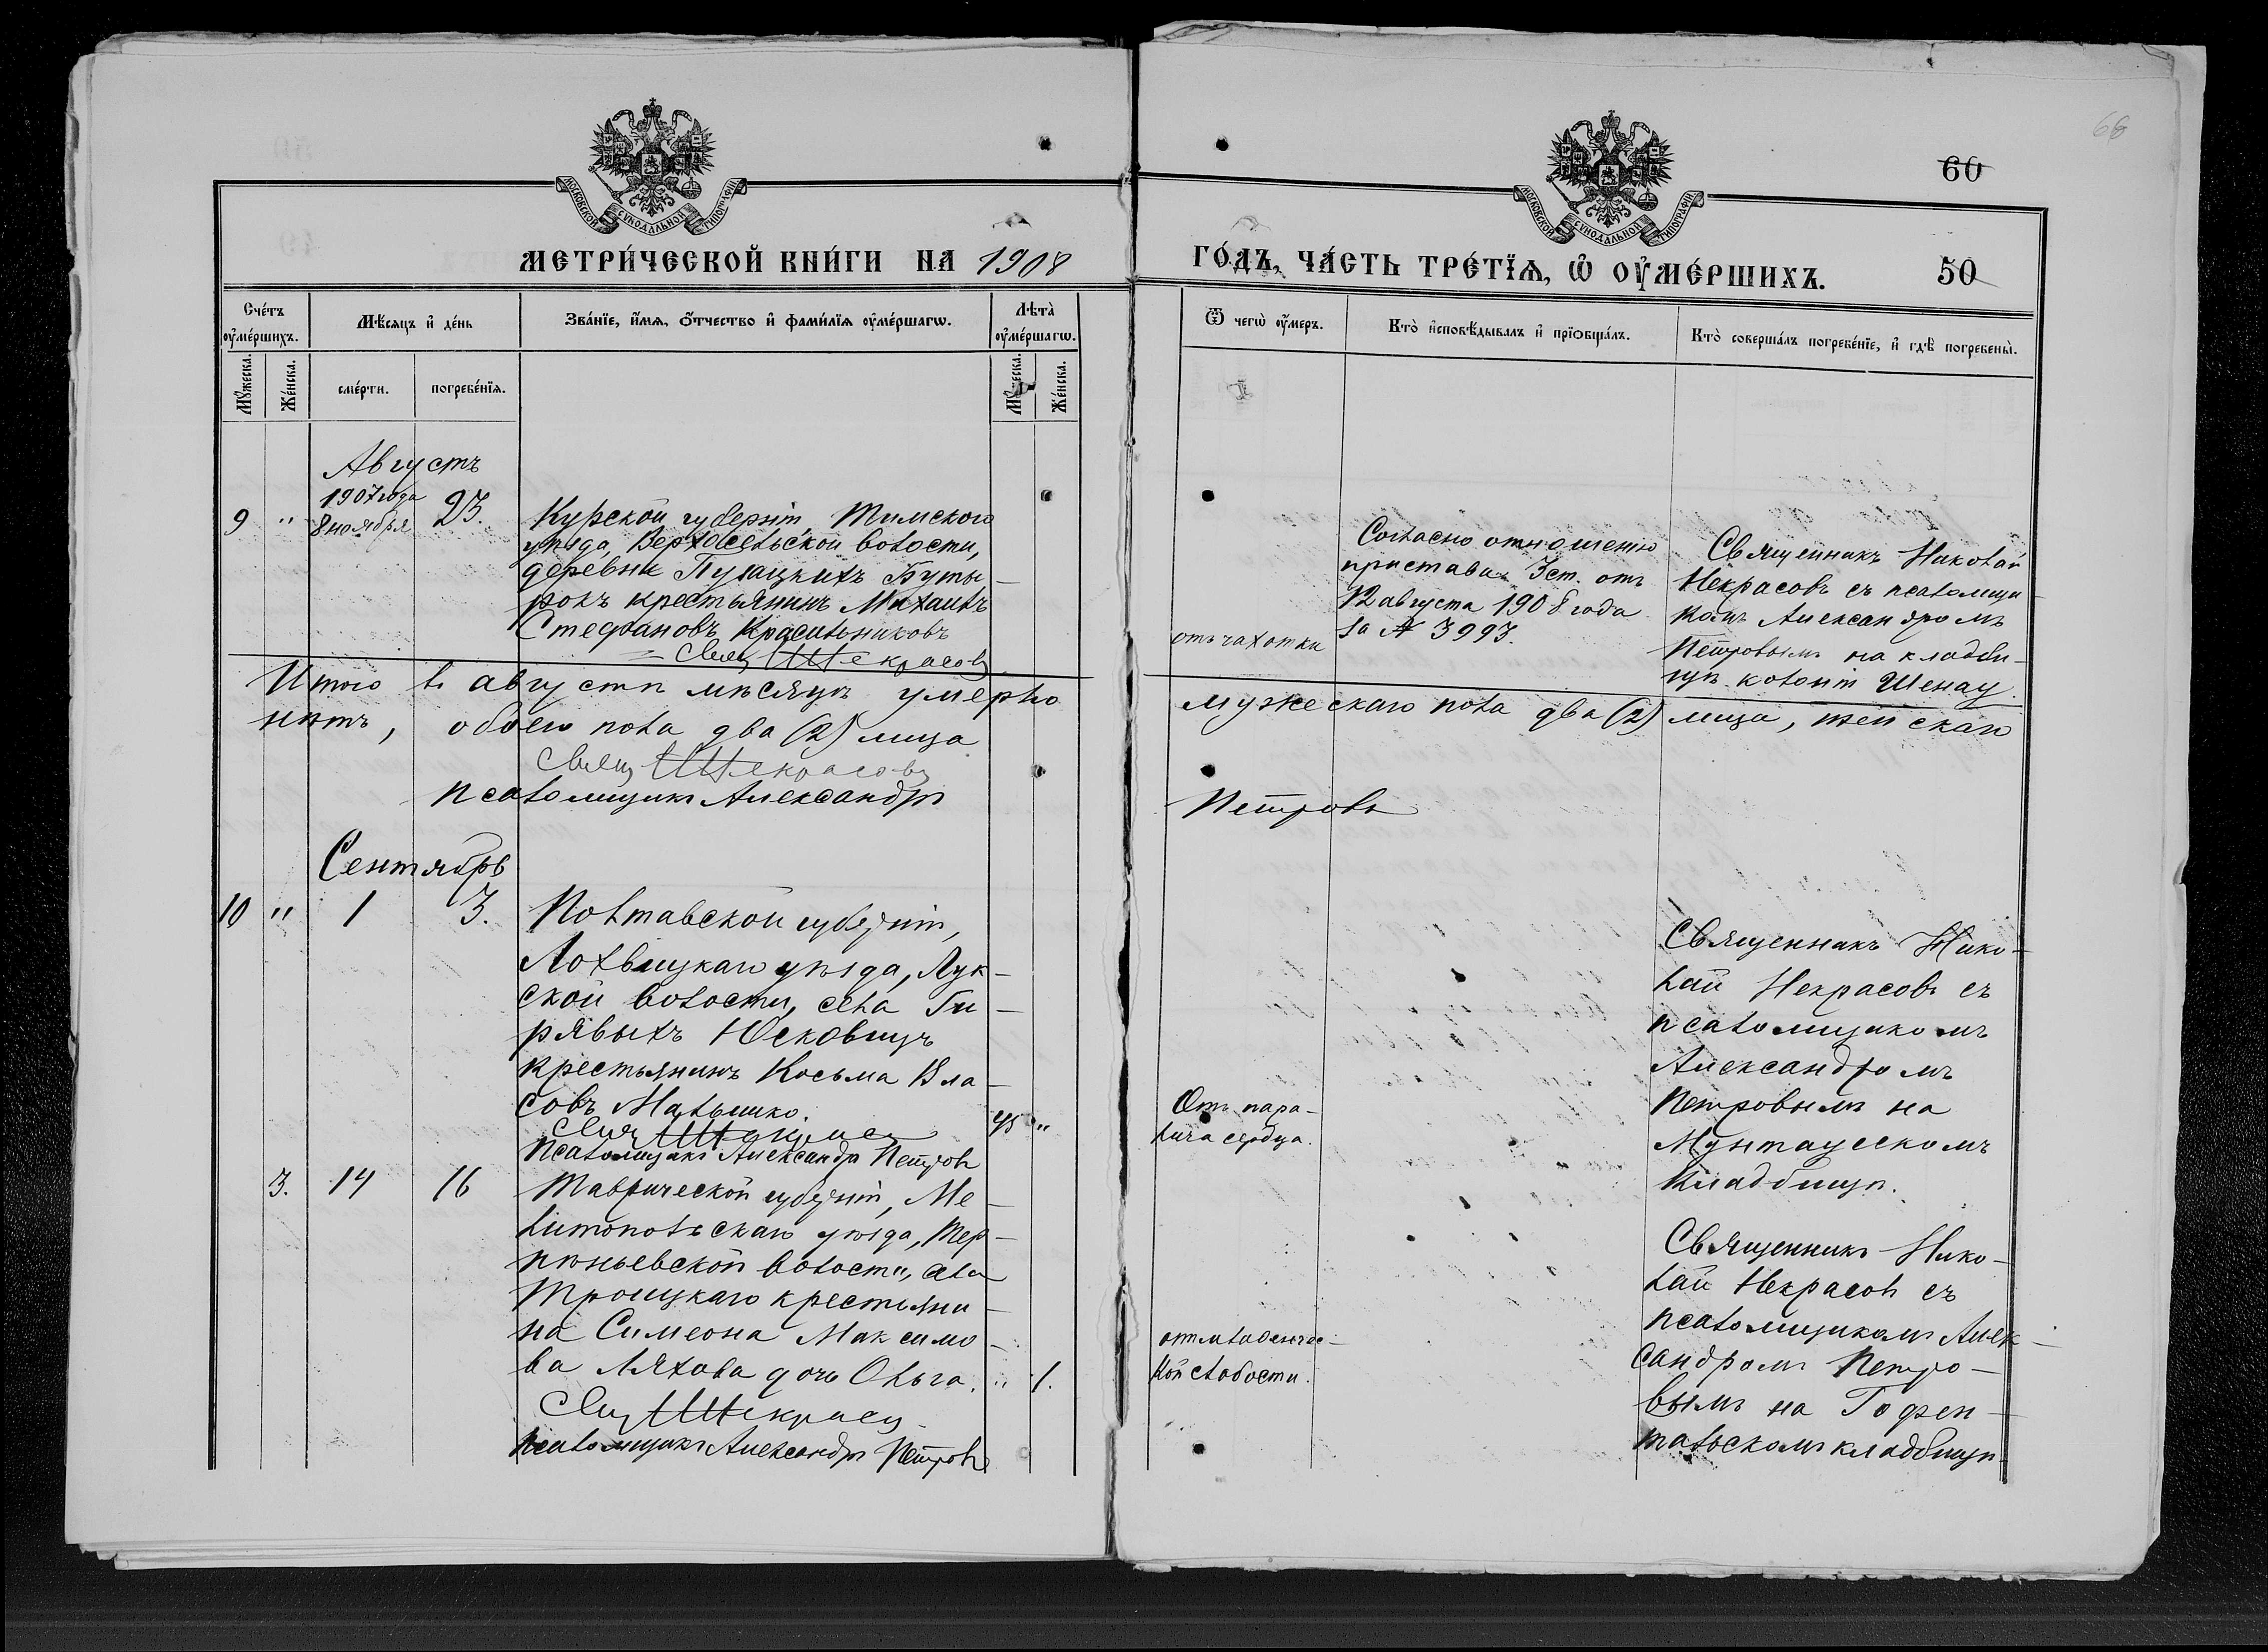 66
60
МОСКОВСКОЙ СѴНОДАЛЬНОЙ ТИПОГРАФІИ
МОСКОВСКОЙ СѴНОДАЛЬНОЙ ТИПОГРАФІИ
МЕТРИ́ЧЕСКОЙ КНИ́ГИ НА 1908
ГО́ДЪ, ЧА́СТЬ ТРЕ́ТЇѦ, Ѡ҆ ОУ҆МЕ́РШИХЪ.
50
Сче́тъ оу҆ме́ршихъ.
Мꙋ́жеска.
Же́нска.
Мѣ́сѧцъ и҆ де́нь
сме́рти.
погребе́нїѧ.
Зва́нїе, и҆́мѧ, ѻ҆́тчество и҆ фами́лїѧ оу҆ме́ршагѡ.
Лѣ̀та̀ оу҆ме́ршагѡ.
Мꙋ́жеска.
Же́нска.
Ѿ чегѡ̀ оу҆́меръ.
Кто̀ и҆сповѣ́дывалъ и҆ прїѡбща́лъ.
Кто̀ соверша́лъ погребе́нїе, и҆ гдѣ̀ погребены̀.
Августъ
1907 года
9 " 8 ноября 23.
Курской губерніи, Тимского
уѣзда, Верхосельской волости,
деревни Пузацкихъ Буты-
рокъ крестьянинъ Михаилъ
Стефановъ Красильниковъ
Свящ Н Некрасовъ
отъ чахотки
Согласно отношенію
пристава 3 ст. отъ
12 августа 1908 года
за № 3993.
Священникъ Николай
Некрасовъ съ псаломщи
комъ Александромъ
Петровымъ на кладби-
щѣ колоніи Шенау.
Итого въ августѣ мѣсяцѣ умерло
мужескаго пола два (2) лица, женскаго
нѣтъ, обоего пола два (2) лица
Свящ Н Некрасовъ
псаломщикъ Александръ
Петровъ
Сентябрь
10 " 1 3.
Полтавской губерніи,
Лохвицкаго уѣзда, Лук-
ской волости, села Ги-
рявыхъ Юсковицъ
крестьянинъ Косьма Вла-
совъ Малышко.
Свящ Н Некрасов
Псаломщикъ Александръ Петровъ
45 "
Отъ пара-
лича сердца.
Священникъ Нико-
лай Некрасовъ съ
псаломщикомъ
Александромъ
Петровымъ на
Мунтаускомъ
кладбищѣ.
3. 14 16
Таврической губерніи, Ме-
литопольскаго уѣзда, Тер-
пѣньевской волости, села
Троицкаго крестьяни-
на Симеона Максимо-
ва Ляхова дочь Ольга.
" 1.
Свящ Н Некрасов
псаломщикъ Александръ Петровъ
отъ младенчес-
кой слабости.
Священникъ Нико-
лай Некрасовъ съ
псаломщикомъ Алек-
сандромъ Петро-
вымъ на Гофен-
тальскомъ кладбищѣ